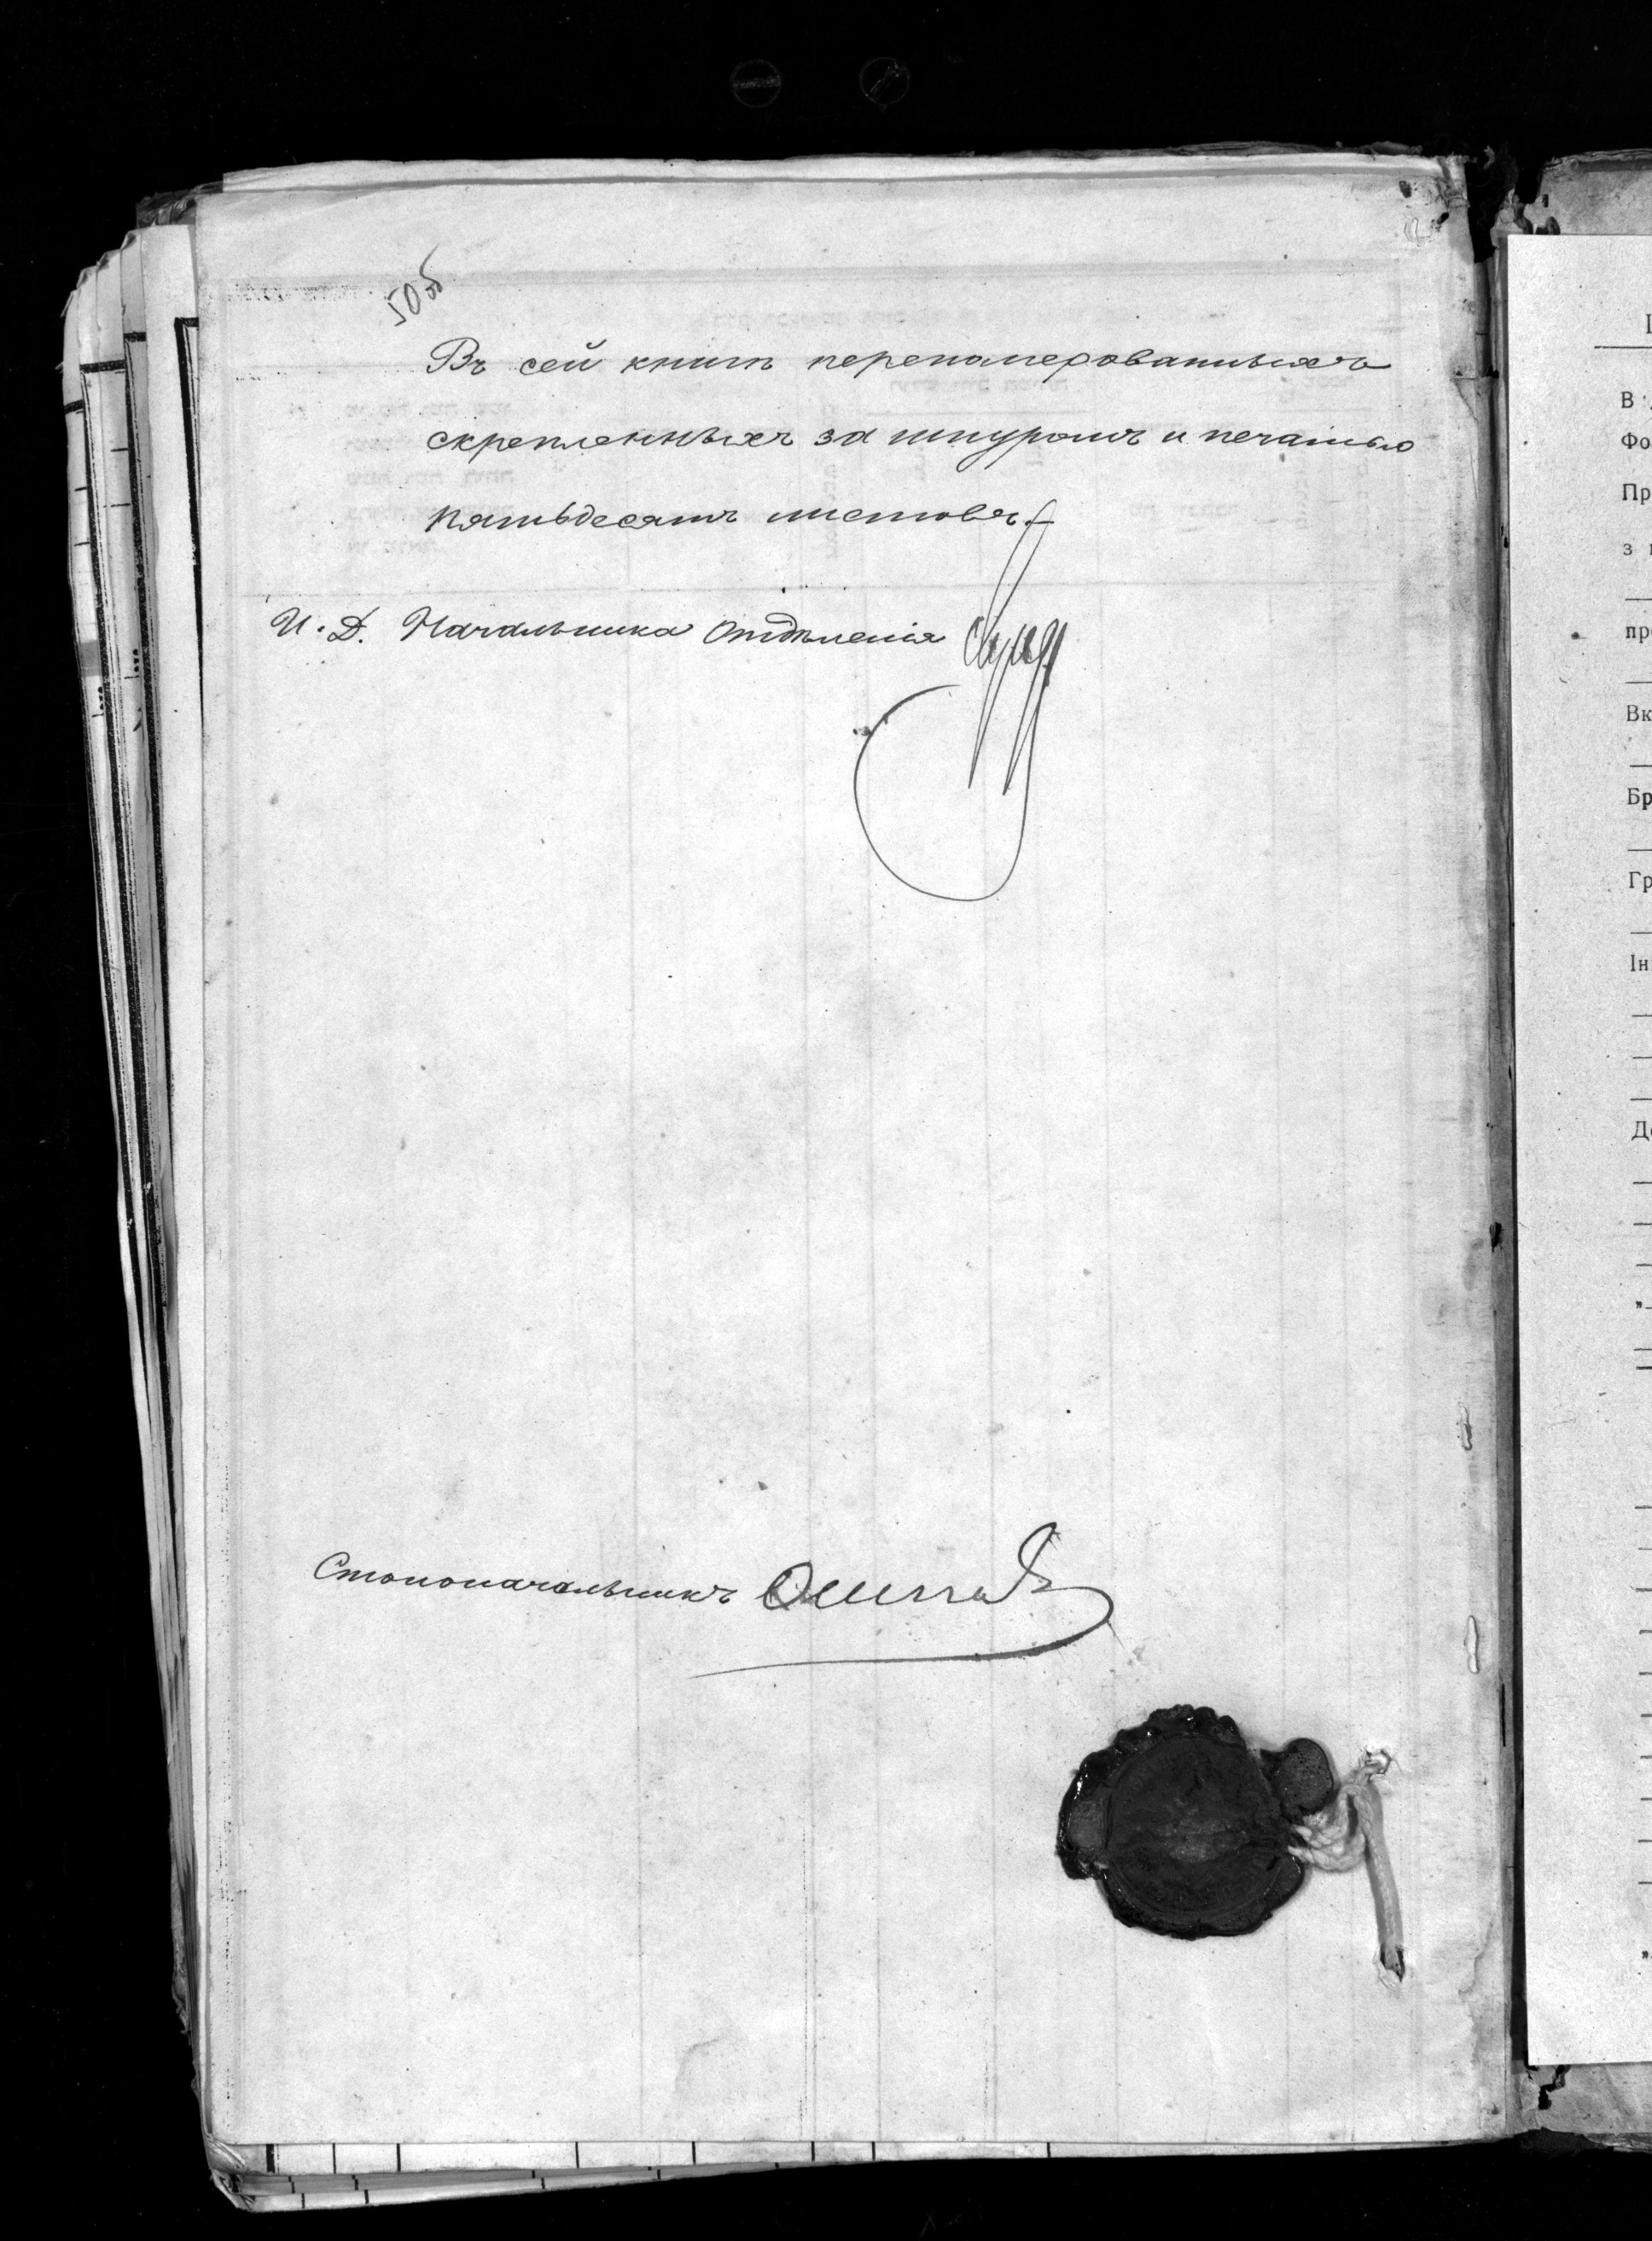 50 об
Въ сей книгѣ перенамерованныхъ
скрепленныхъ за шнуромъ и печатью
пятьдесятъ листовъ.
И. Д. Начальника Отдѣленія
Столоначальникъ
В
Фо
Пр
з
пр
Вк
Бр
Гр
Ін